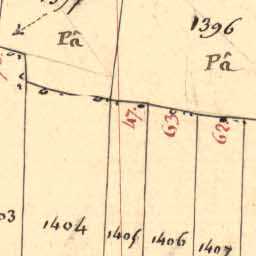 1396
Pâ
Pâ
47
63
62
03
1404
1405
1406
1407